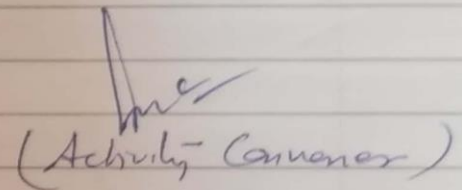 (Activity Convenor)